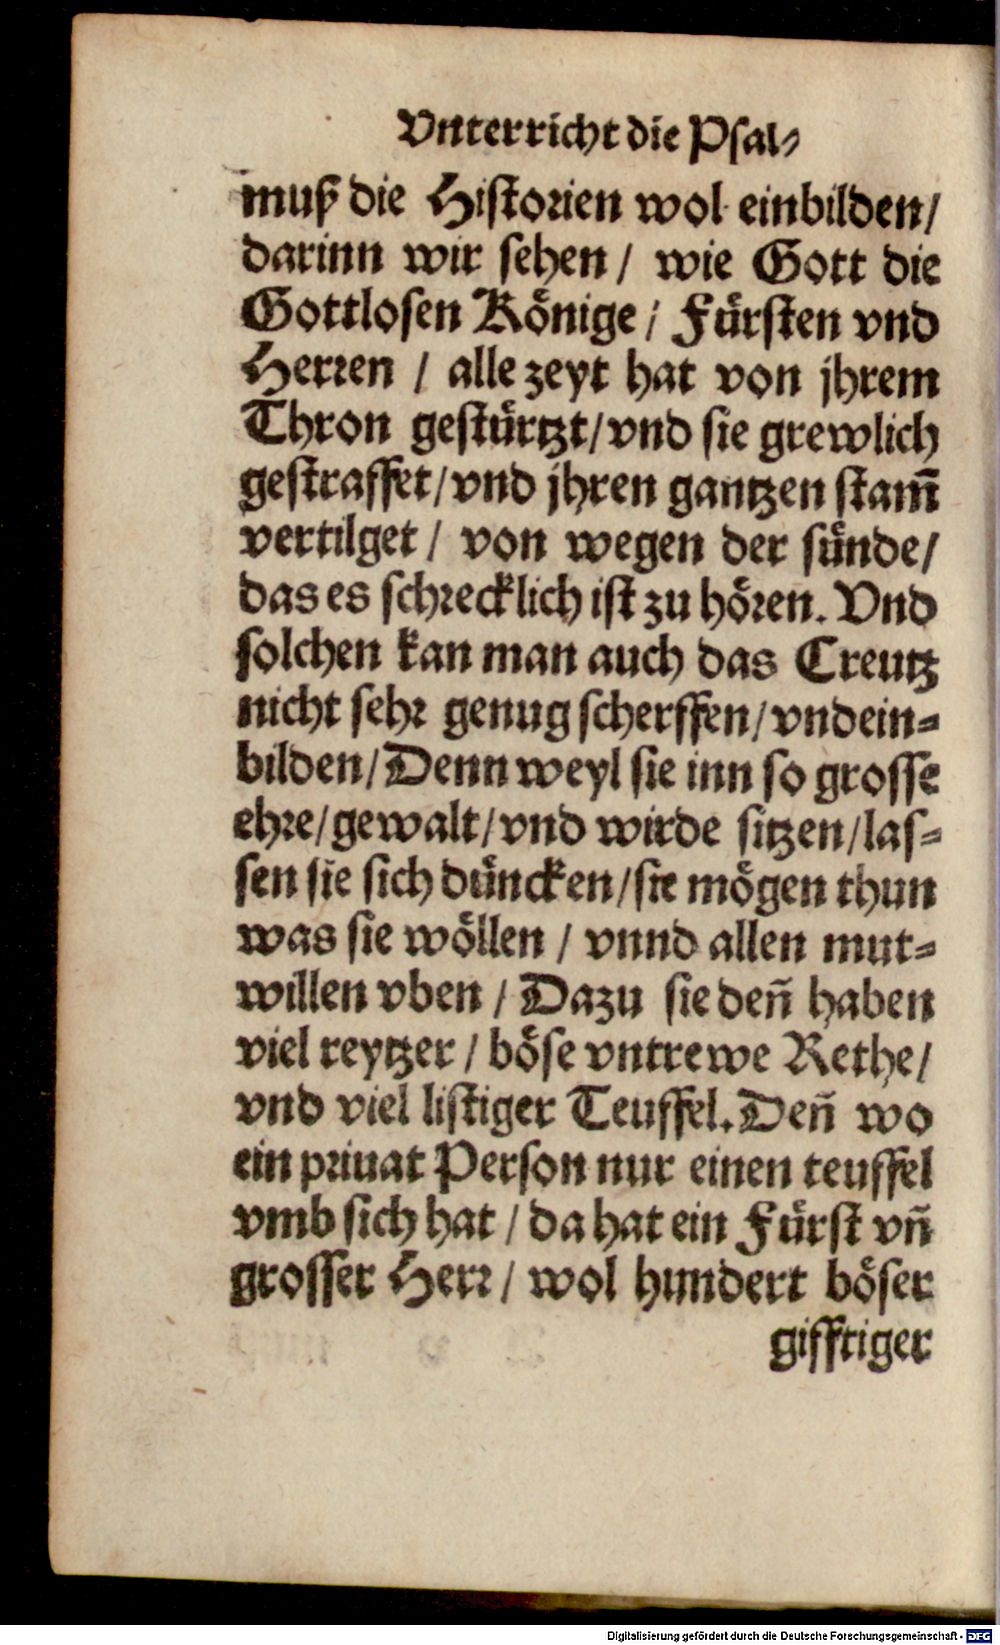 Vnterricht die Psal⸗
muß die Historien wol einbilden/
darinn wir sehen / wie Gott die
Gottlosen Könige / Fürsten vnd
Herren / alle zeyt hat von jhrem
Thron gestürtzt/vnd sie grewlich
gestraffet/vnd jhren gantzen stam̃
vertilget / von wegen der sünde/
das es schrecklich ist zu hören. Vnd
solchen kan man auch das Creutz
nicht sehr genug scherffen/vnd ein⸗
bilden/Denn weyl sie inn so grosse
ehre/gewalt/vnd wirde sitzen/las⸗
sen sie sich düncken/sie mögen thun
was sie wöllen / vnnd allen mut⸗
willen vben / Dazu sie deñ haben
viel reytzer / böse vntrewe Rethe/
vnd viel listiger Teuffel. Deñ wo
ein priuat Person nur einen teuffel
vmb sich hat / da hat ein Fürst vñ
grosser Herr / wol hundert böser
gifftiger
Digitalisierung gefördert durch die Deutsche Forschungsgemeinschaft - DFG